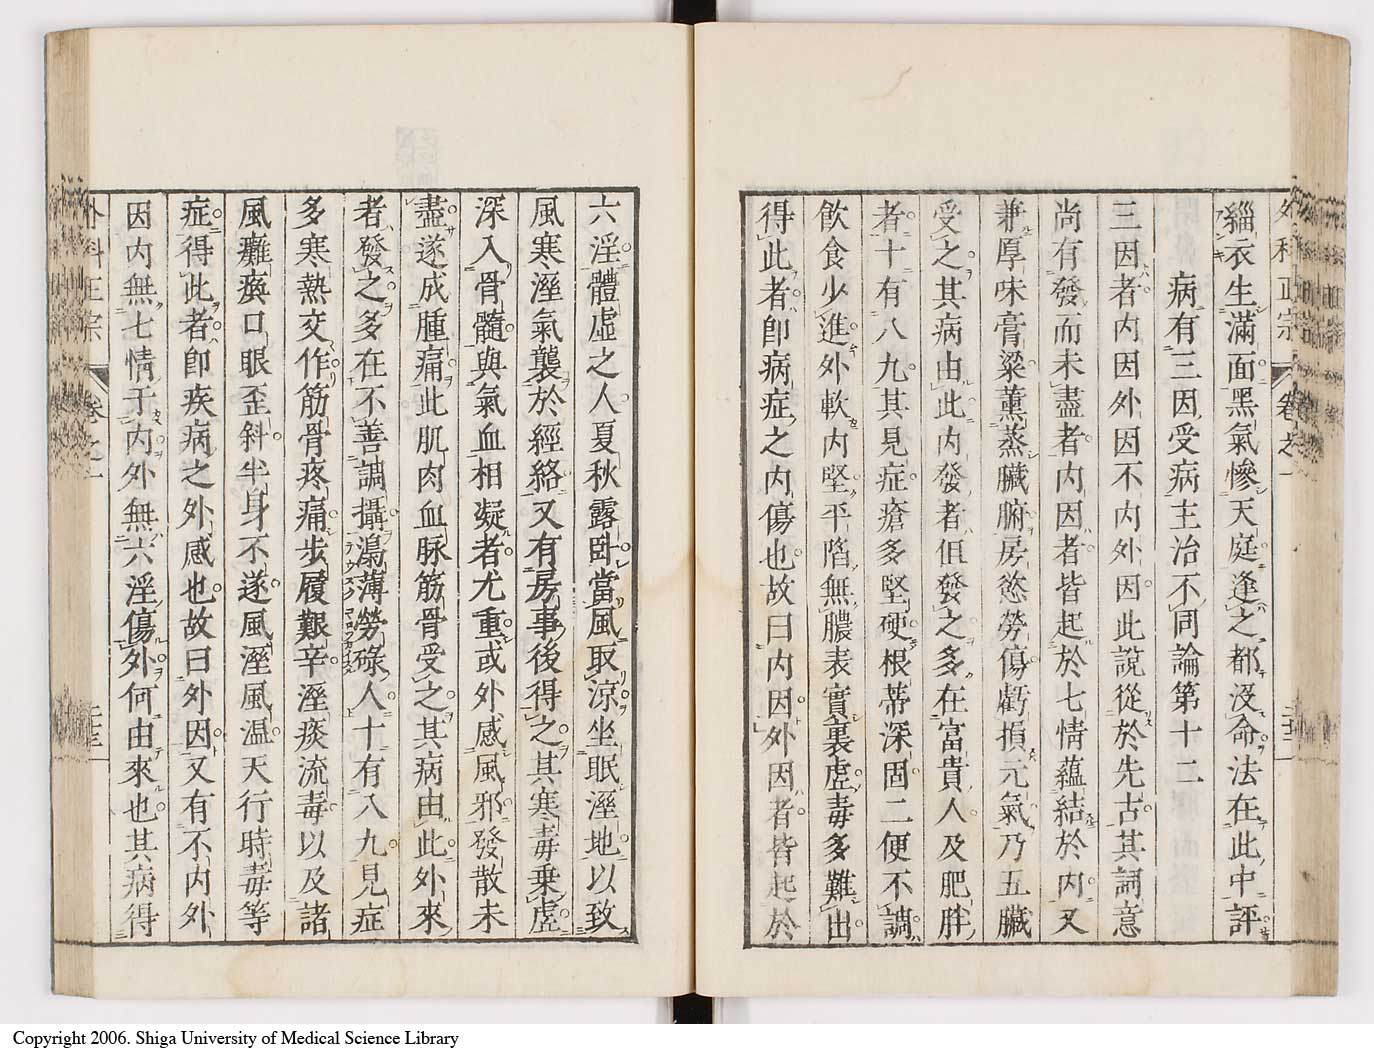 外科正宗 卷之一
緇衣生滿面黑氣慘天庭逢之都沒命法在此中評
病有三因受病主治不同論第十二
三因者内因外因不内外因此說從於先古其詞意
尚有發而未盡者内因者皆起於七情蘊結於内又
兼厚味膏粱薰蒸臟腑房慾勞傷虧損元氣乃五臟
受之其病由此内發者但發之多在富貴人及肥胖
者十有八九其見症瘡多堅硬根蒂深固二便不調
飲食少進外軟内堅平陷無膿表實裏虛毒多難出
得此者卽病症之内傷也故曰内因外因者皆起於
六淫體虛之人夏秋露臥當風取涼坐眠溼地以致
風寒溼氣襲於經絡又有房事後得之其寒毒乗虛
深入骨髓與氣血相凝者尤重或外感風邪發散未
盡遂成腫痛此肌肉血脉筋骨受之其病由此外來
者發之多在不善調攝澆薄勞碌人十有八九見症
多寒熱交作筋骨疼痛步履艱辛溼痰流毒以及諸
風癱瘓口眼歪斜半身不遂風溼風温天行時毒等
症得此者卽疾病之外感也故曰外因又有不内外
因内無七情于内外無六淫傷外何由來也其病得
外科正宗 卷之一
Copyright 2006. Shiga University of Medical Science Library